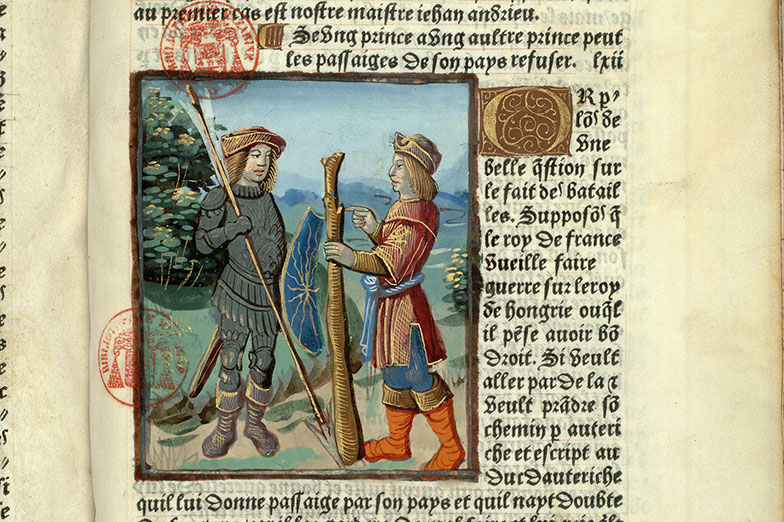 au premier cas est nostre maistre iehan andrieu.
Se vng prince a vng aultre prince peut
les passaiges de son pays refuser. lxii
OR p̱
lōs de
vne
belle q̄stion sur
le fait des batail
les. Supposōs q̄
le roy de france
vueille faire
guerre sur le roy
de hongrie ouq̄l
il pēse auoir bō
droit. Si veult
aller par de la ⁊
veult prādre sō
chemin p auteri
che et escript au
duc dauteriche
quil lui donne passaige par son pays et quil nayt doubte